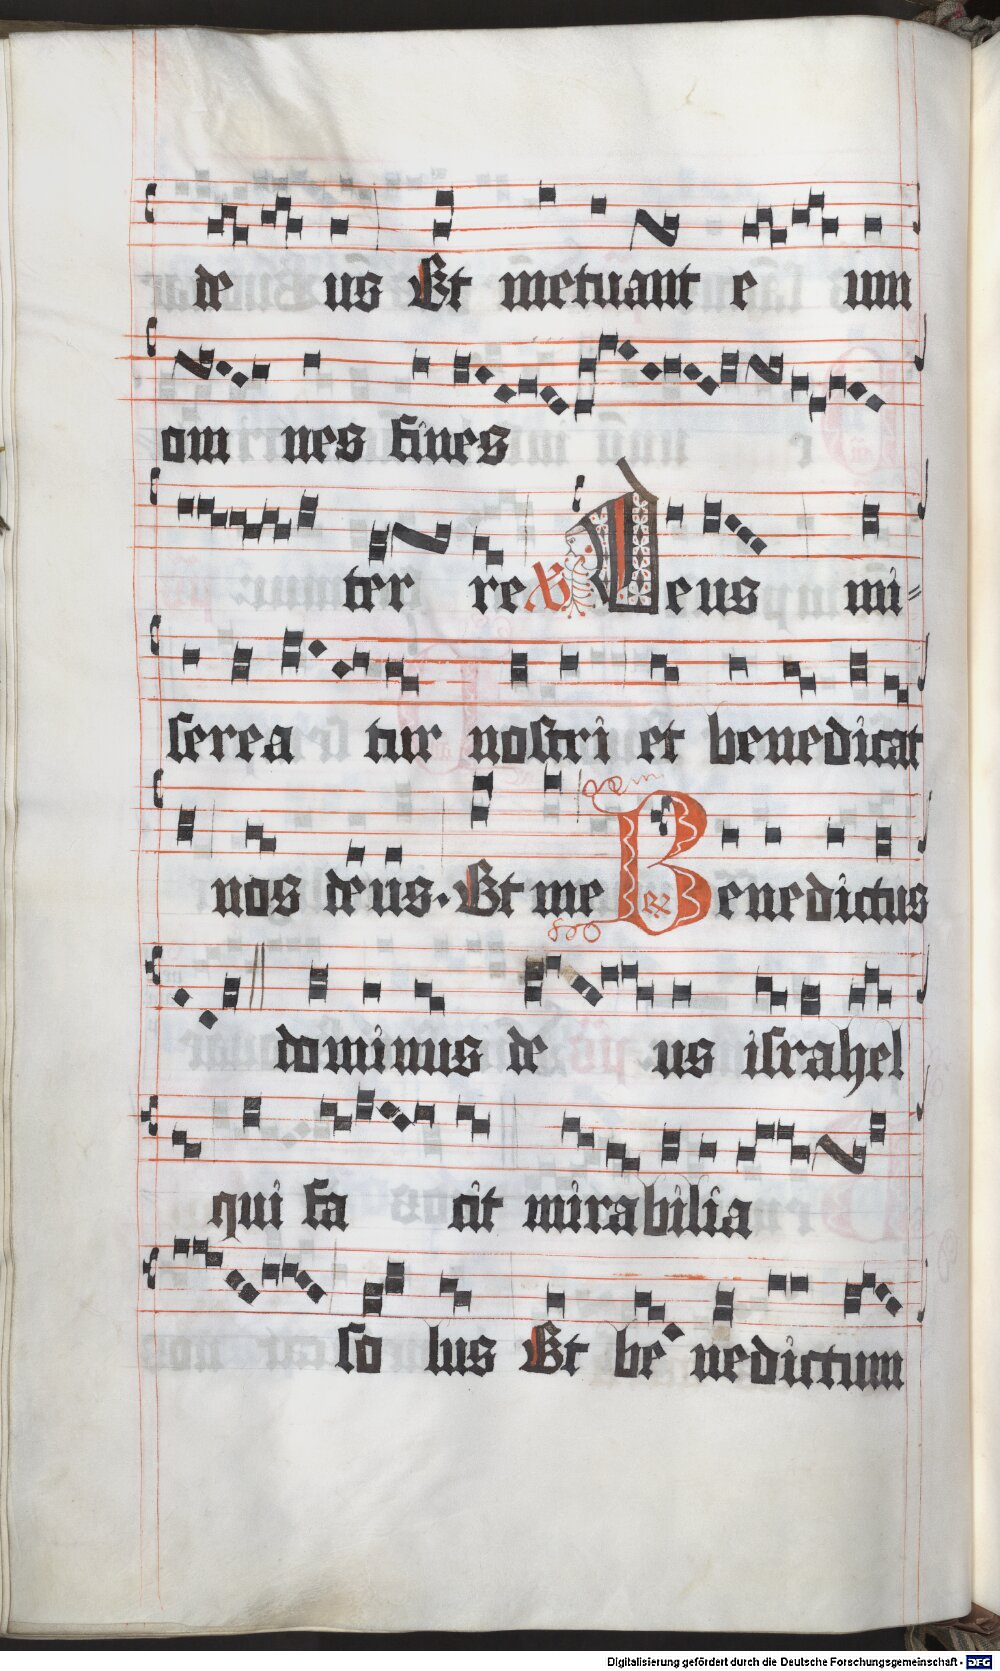 de us Et metuant e um
om nes fines
ter re V Deus mi-
serea tur nostri et benedicat
nos deus. Et me Benedictus
dominus de us israhel
qui fa cit mirabilia
so lus Et be nedictum
Digitalisierung gefördert durch die Deutsche Forschungsgemeinschaft - DFG